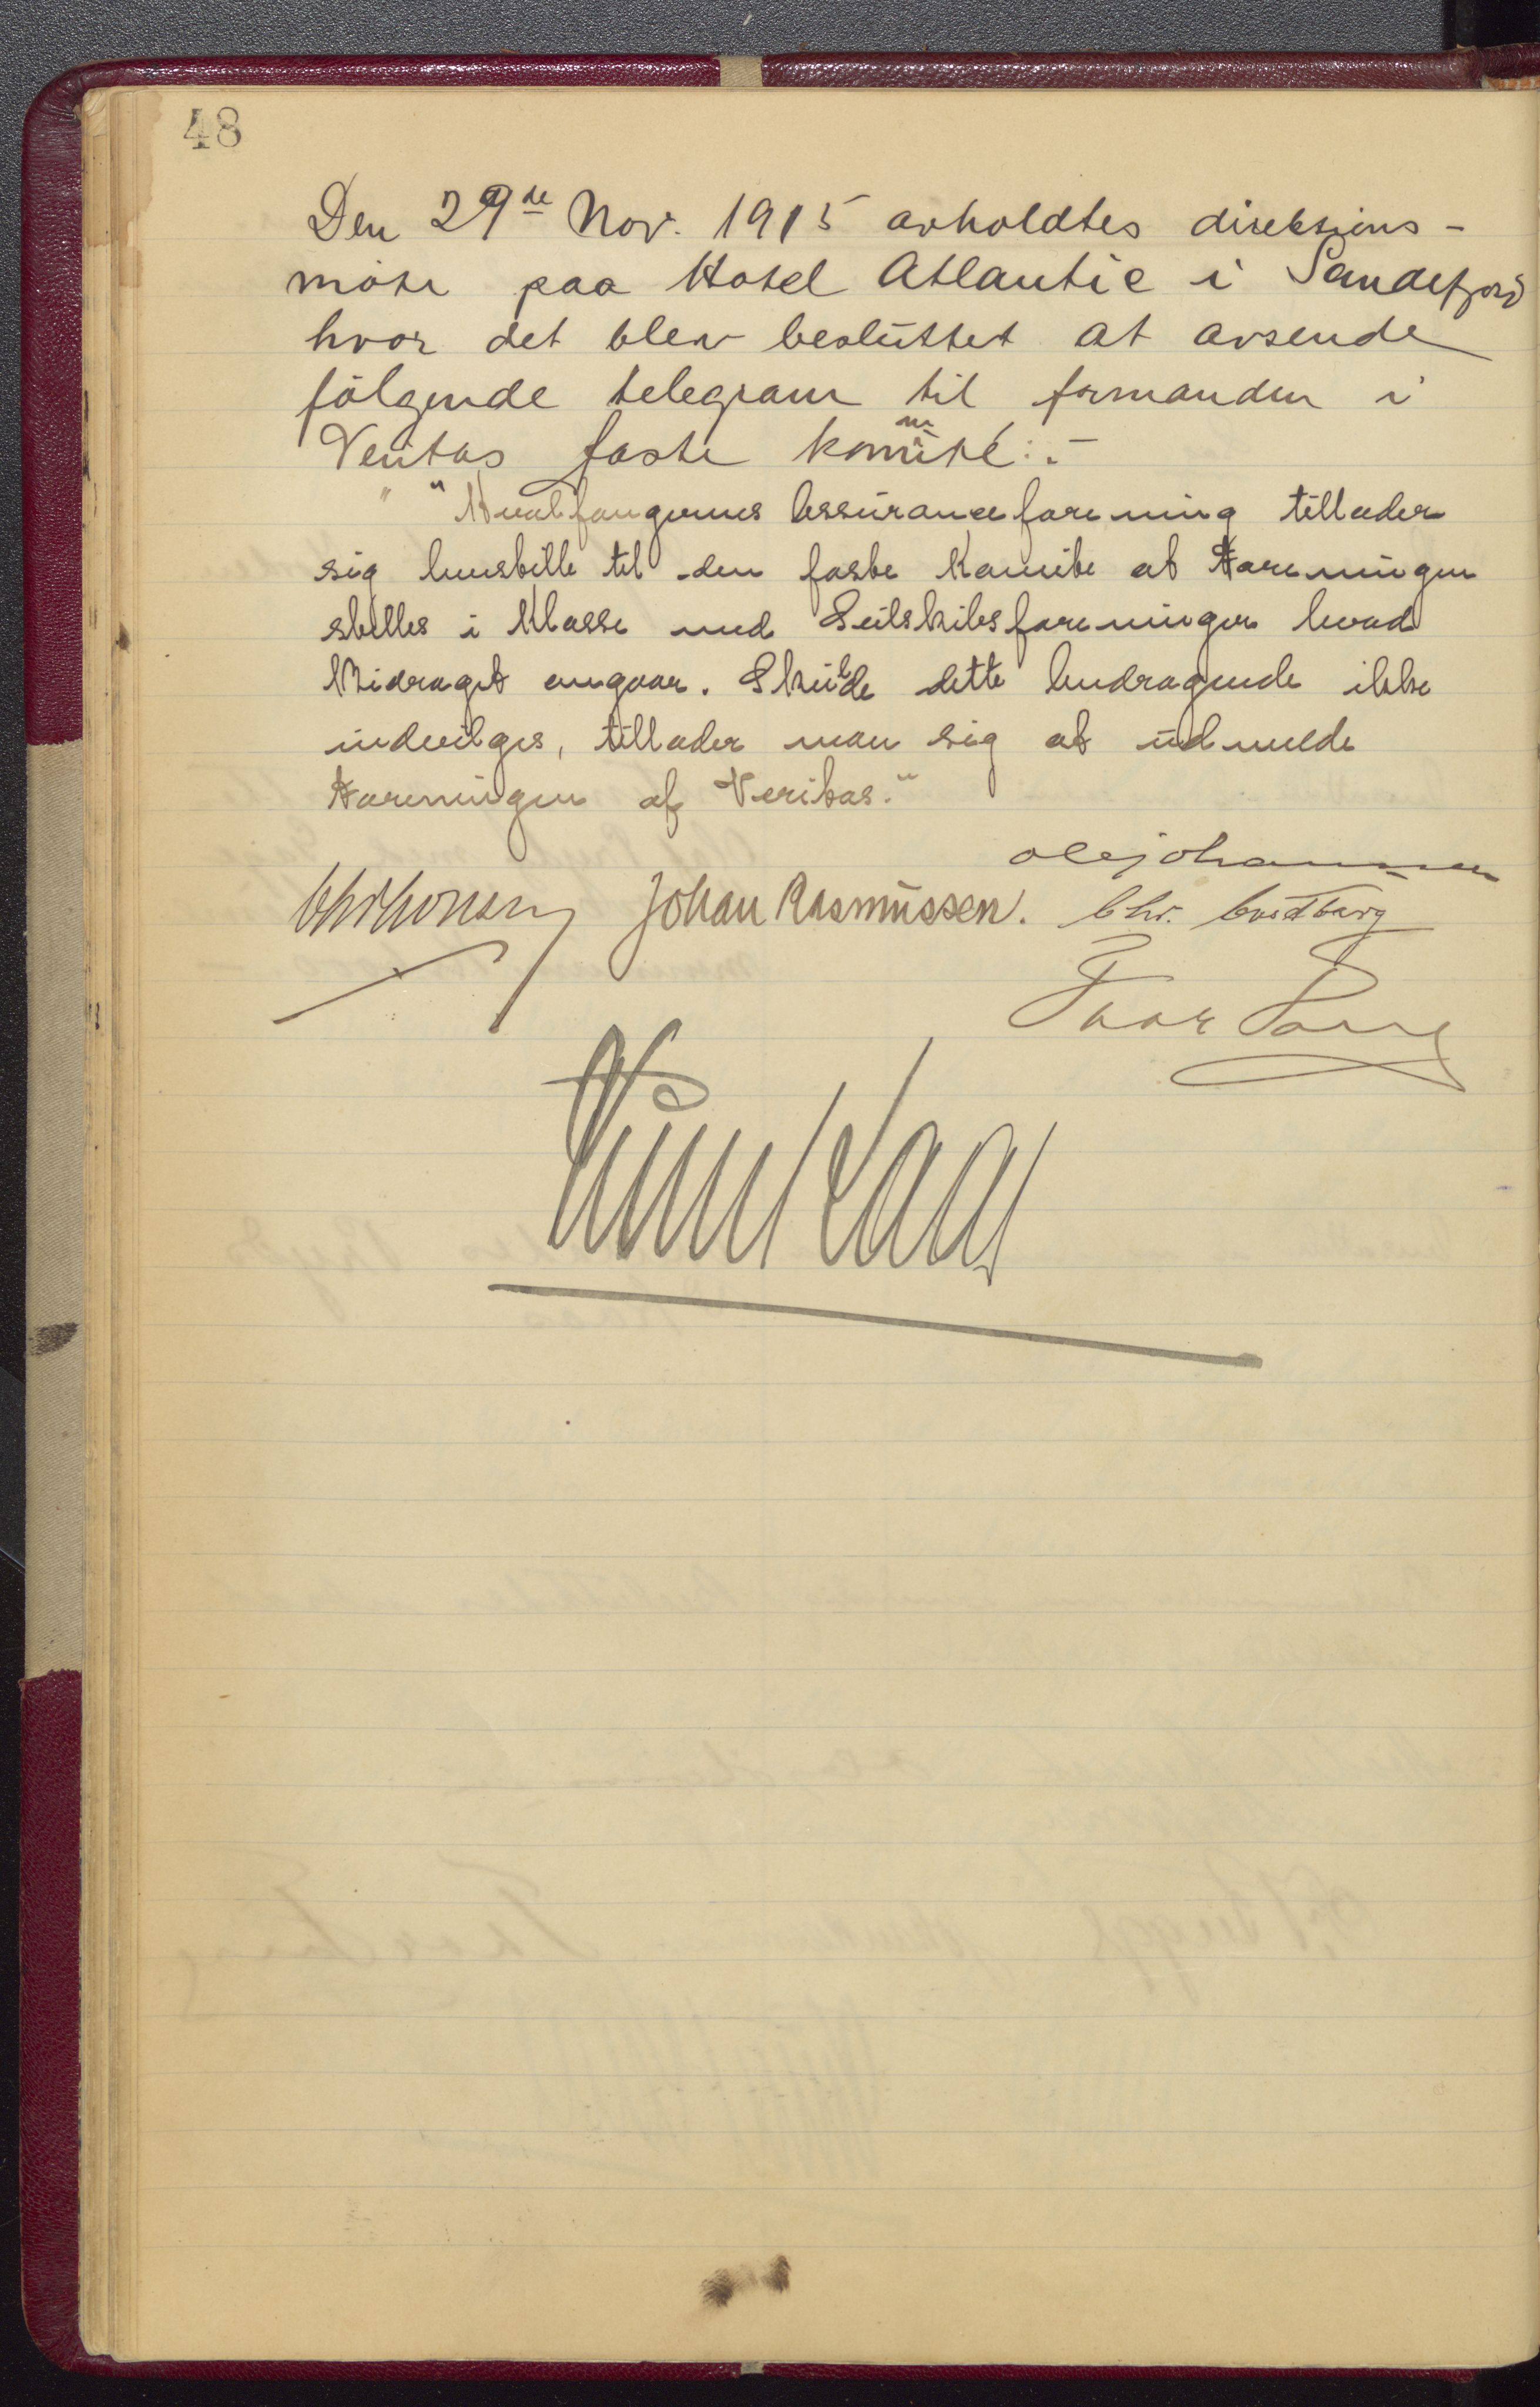 48
Den 29de Nov. 1915 avholdtes direksions-
möte paa Hotel Atlantic i Sandefjord
hvor det blev besluttet at avsende
fölgende telegram til formanden i
Veritas faste kommité:-
"Hvalfangernes Assuranceforening tillader
sig henstille til den faste Komite at Foreningen
stilles i Klasse med Seilskibsforeninger hvad
Bidraget angaar. Skulde dette andragende ikke
indvilges, tillader man sig at udmelde
Foreningen af Veritas."
Ole Johannessen
Johan Rasmussen. Chr.
Thor Dahl